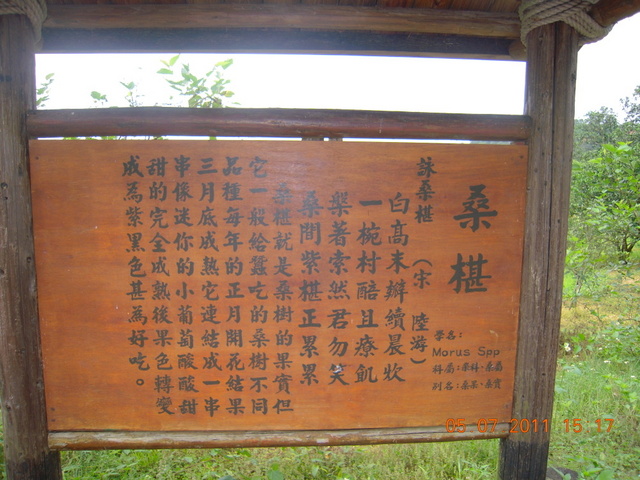 桑椹
學名:
Morus Spp
科屬:桑科‧桑屬
別名:桑實
詠桑椹 (宋 陸游)
白高末辦續晨炊
一椀村醅且療飢
槃著索然君勿笑
桑間紫椹正累累
桑椹就是桑樹的果實但
它一般給蠶吃的桑樹不同
品種每年的正月開花結果
三月底成熟它連結成一串
串像迷你的小葡萄酸酸甜
甜的完全成熟後果色轉變
成為紫黑色甚為好吃。
05 07 2011 15 17